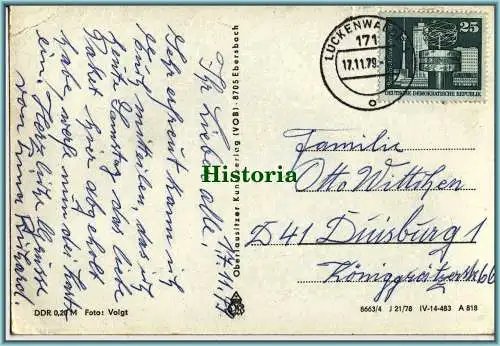 17.11.79
Ihr Lieben alle!
Sehr erfreut kann ich
Euch mitteilen, das ich
heute Samstag das liebe
Paket hier abgeholt
habe, werde nun die Tante
ein Herz. liebe Grüsse
von Eurer
Oberlausitzer Kunstverlag (VOB) · 8705 Ebersbach
DDR 0,20 M Foto: Voigt
LUCKENWALDE
171
17.11.79.
25
DEUTSCHE DEMOKRATISCHE REPUBLIK
Historia
Familie
Otto Witthen
D 41 Duisburg 1
Königgrätzerstr 66
8663/4 J 21/78 IV-14-483 A 818